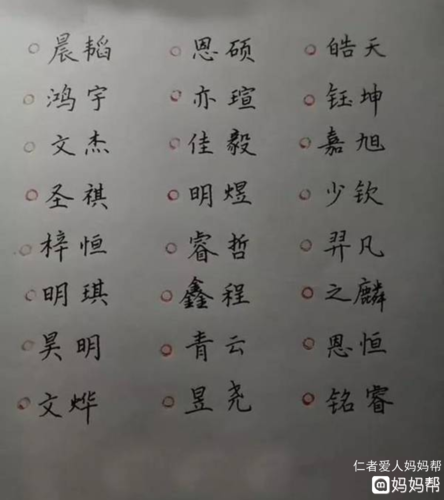 晨韬 恩硕 皓天
鸿宇 亦瑄 钰坤
文杰 佳毅 嘉旭
圣祺 明煜 少钦
梓恒 睿哲 羿凡
明琪 鑫程 之麟
昊明 青云 恩恒
文烨 昱尧 铭睿
仁者爱人妈妈帮
妈妈帮